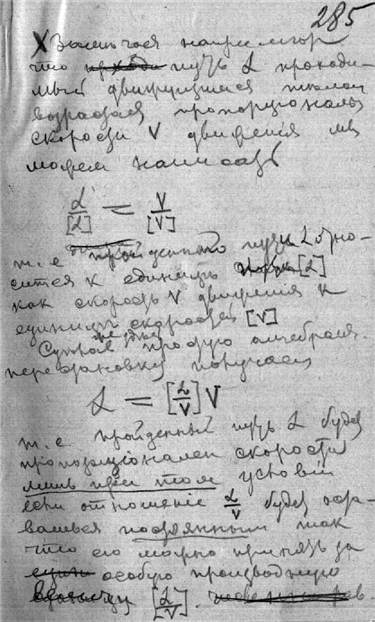 285
X Замѣчая напримѣр
что путь L проходи-
мый движущимся тѣлом
возрастая пропорціонально
скорости V движенія мы
можем написать
L/[L] = V/[V]
т. е. пройденный путь L отно-
сится к единицѣ [L]
как скорость V движенія к
единицѣ скорости [V]
Сдѣлав простую алгебраич.
перестановку получаем
L = [L/V] V
т. е. пройденный путь L будет
пропорціонален скорости
лишь при том условіи
если отношеніе L/V будет оста-
ваться постоянным так
что его можно принять за
особую производную
[L/V].